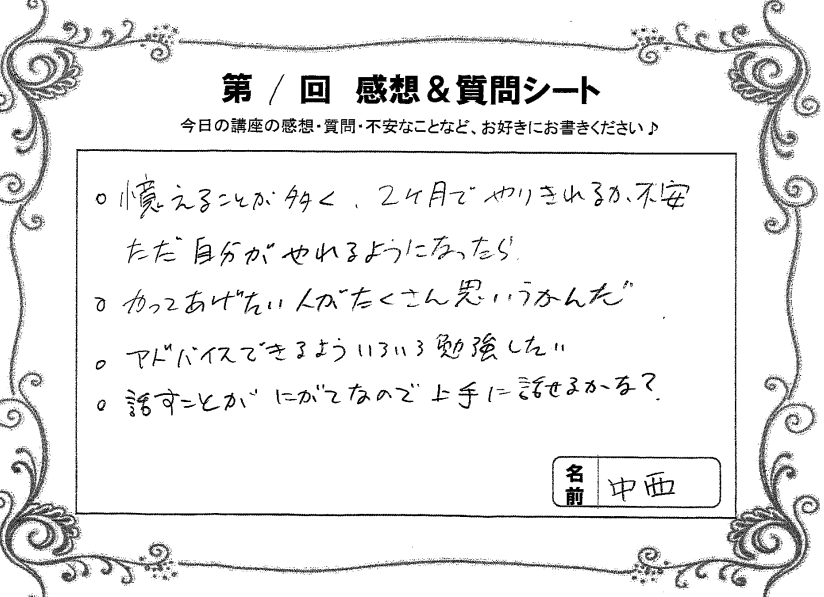 第1回 感想&質問シート
今日の講座の感想・質問・不安なことなど、お好きにお書きください♪
○ 憶えることが多く、2ヶ月でやりきれるか、不安
ただ自分がやれるようになったら
○ やってあげたい人がたくさん思いうかんだ
○ アドバイスできるよういろいろ勉強したい
○ 話すことがにがてなので上手に話せるかな?
名前 中西